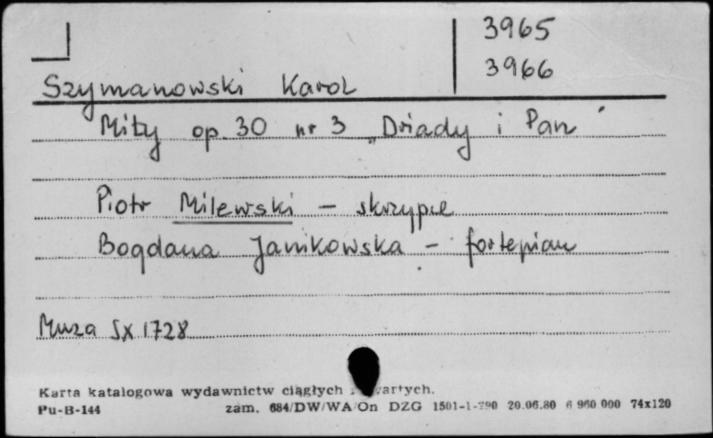 3965
3966
Szymanowski Karol
Mity op. 30 nr 3 „Driady i Pan"
Piotr Milewski - skrzypce
Bogdana Jamkowska - fortepian
Muza SX 1728
Karta katalogowa wydawnictw ciągłych
Pu-B-144 zam. 684/DW/WA/On DZG 1501-1-790 20.06.80 6 960 000 74x120